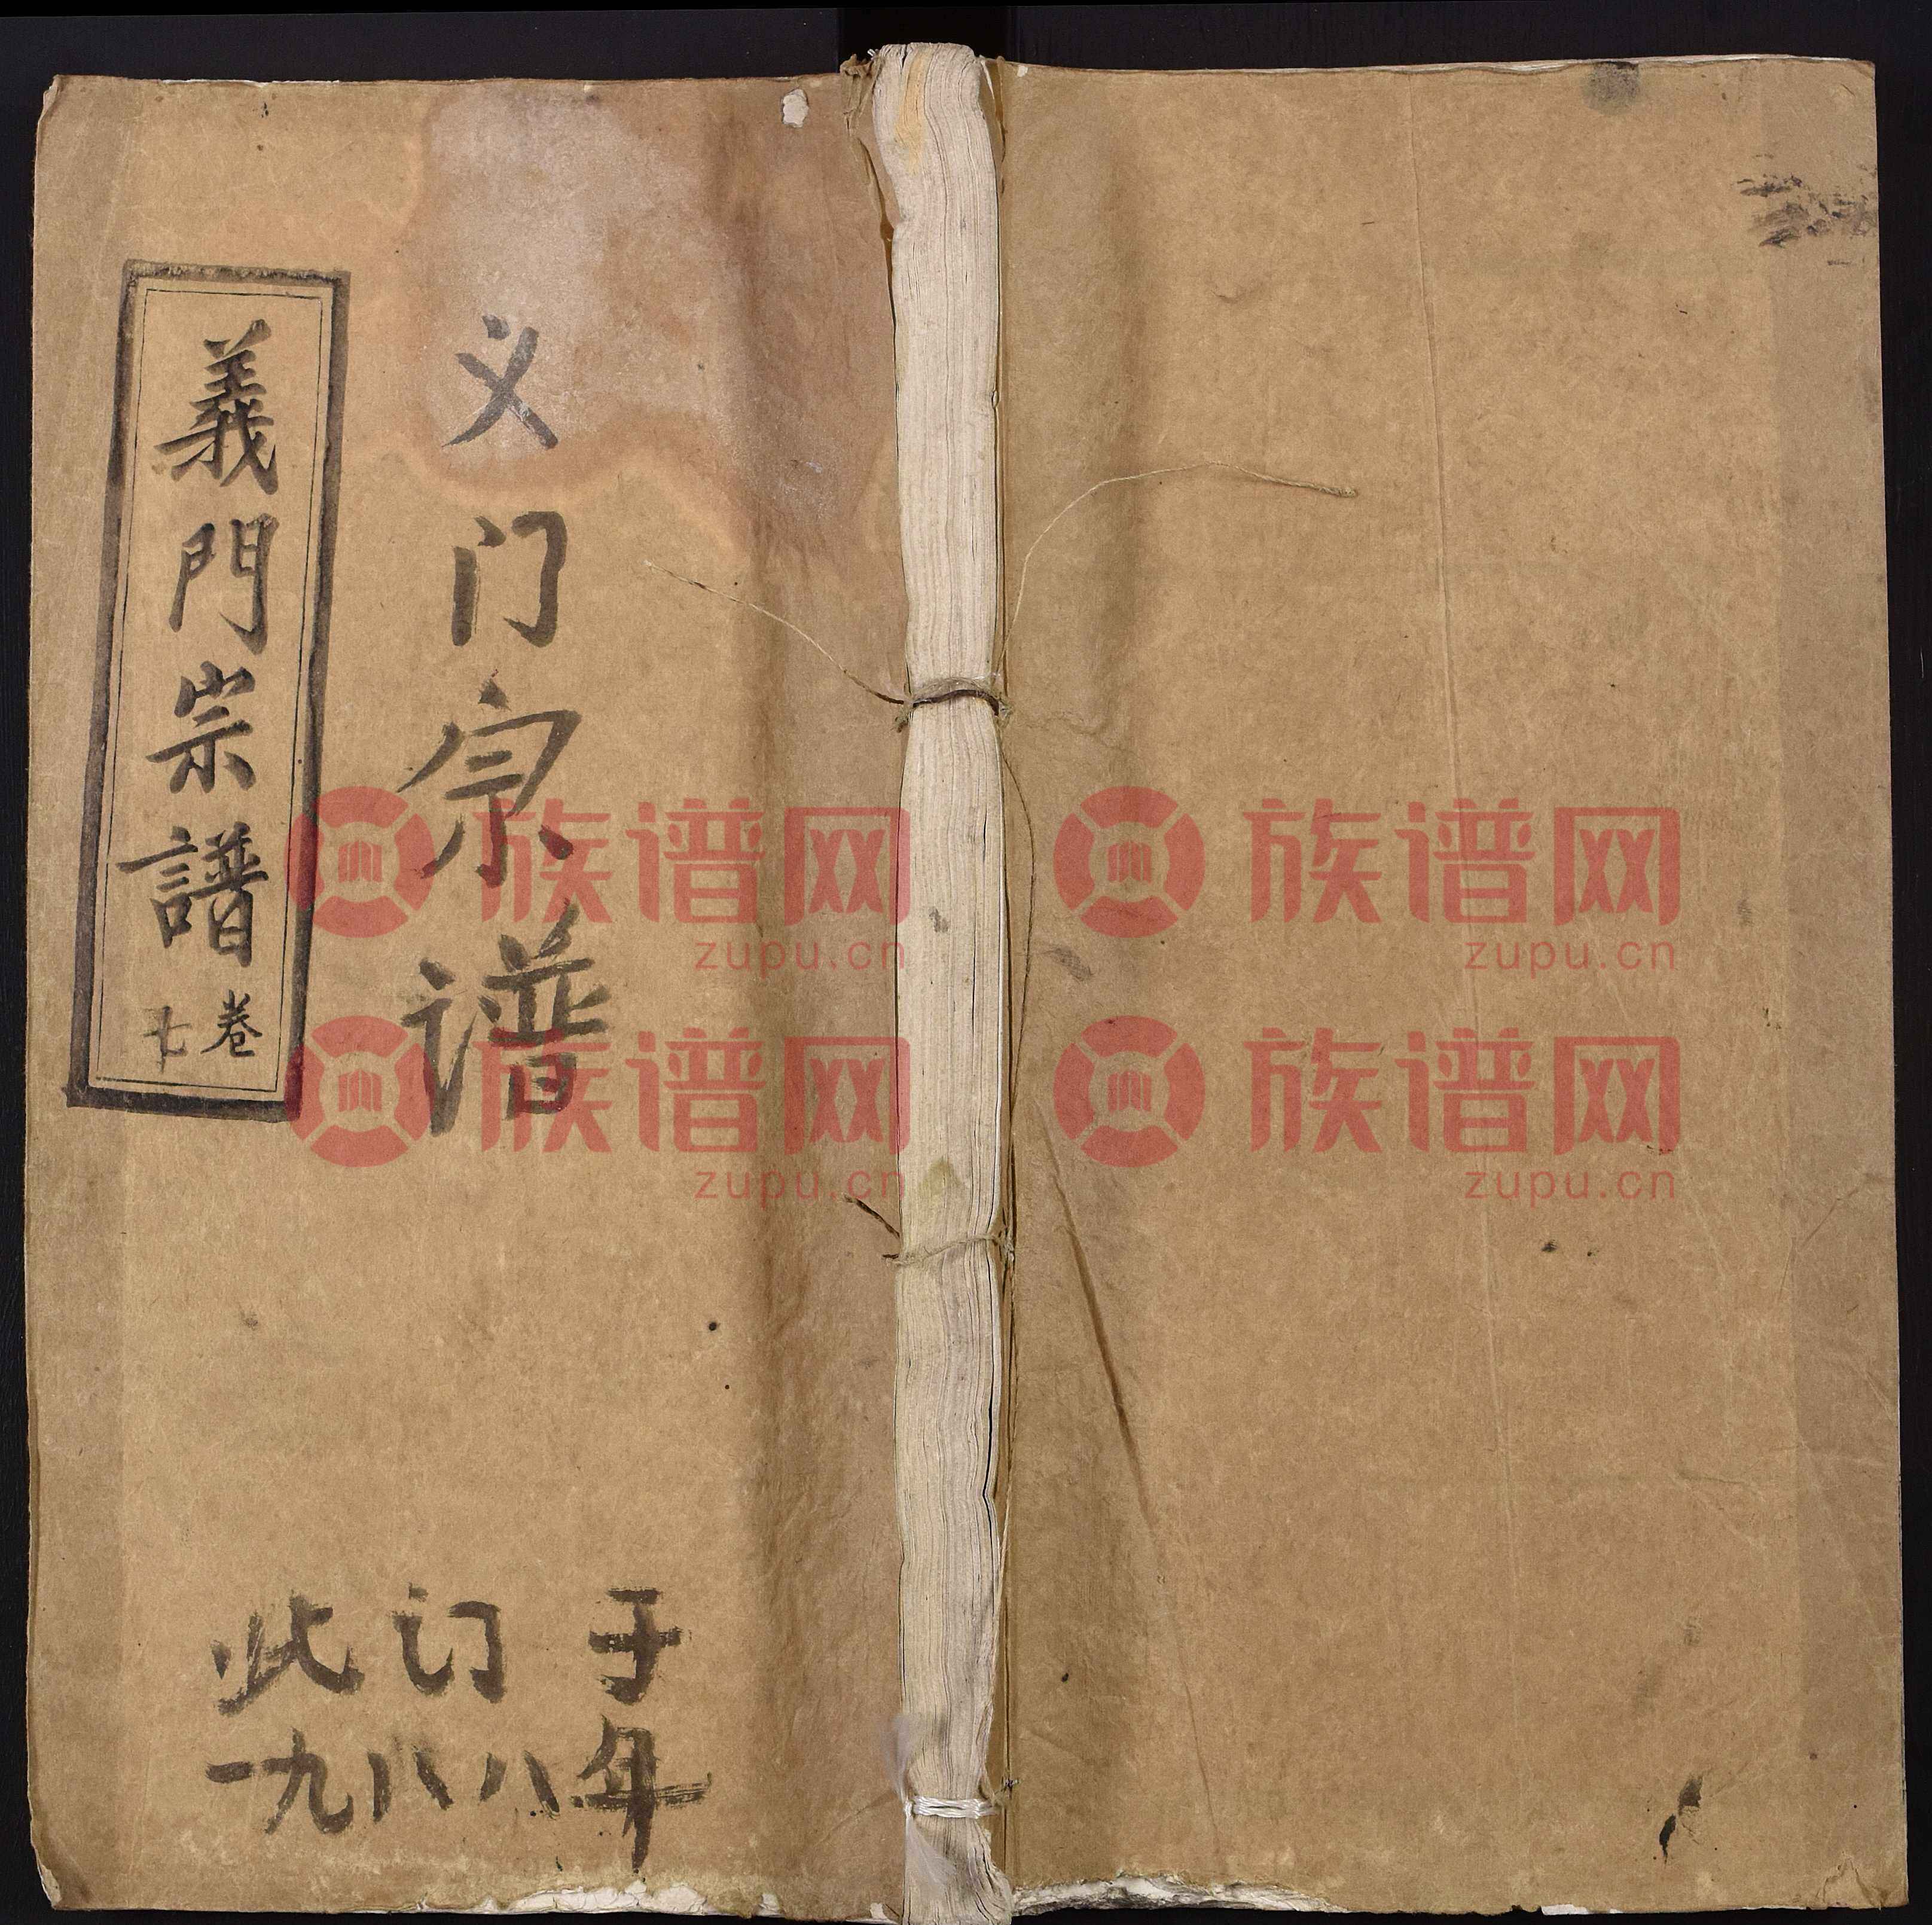 義門宗譜
卷七
义门宗谱
此订于
一九八八年
族谱网
zupu.cn
族谱网
zupu.cn
族谱网
zupu.cn
族谱网
zupu.cn